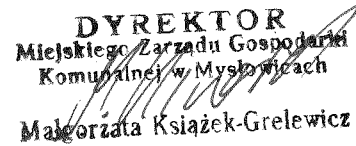 DYREKTOR
Miejskiego Zarządu Gospodarki
Komunalnej w Mysłowicach
Małgorzata Książek-Grelewicz